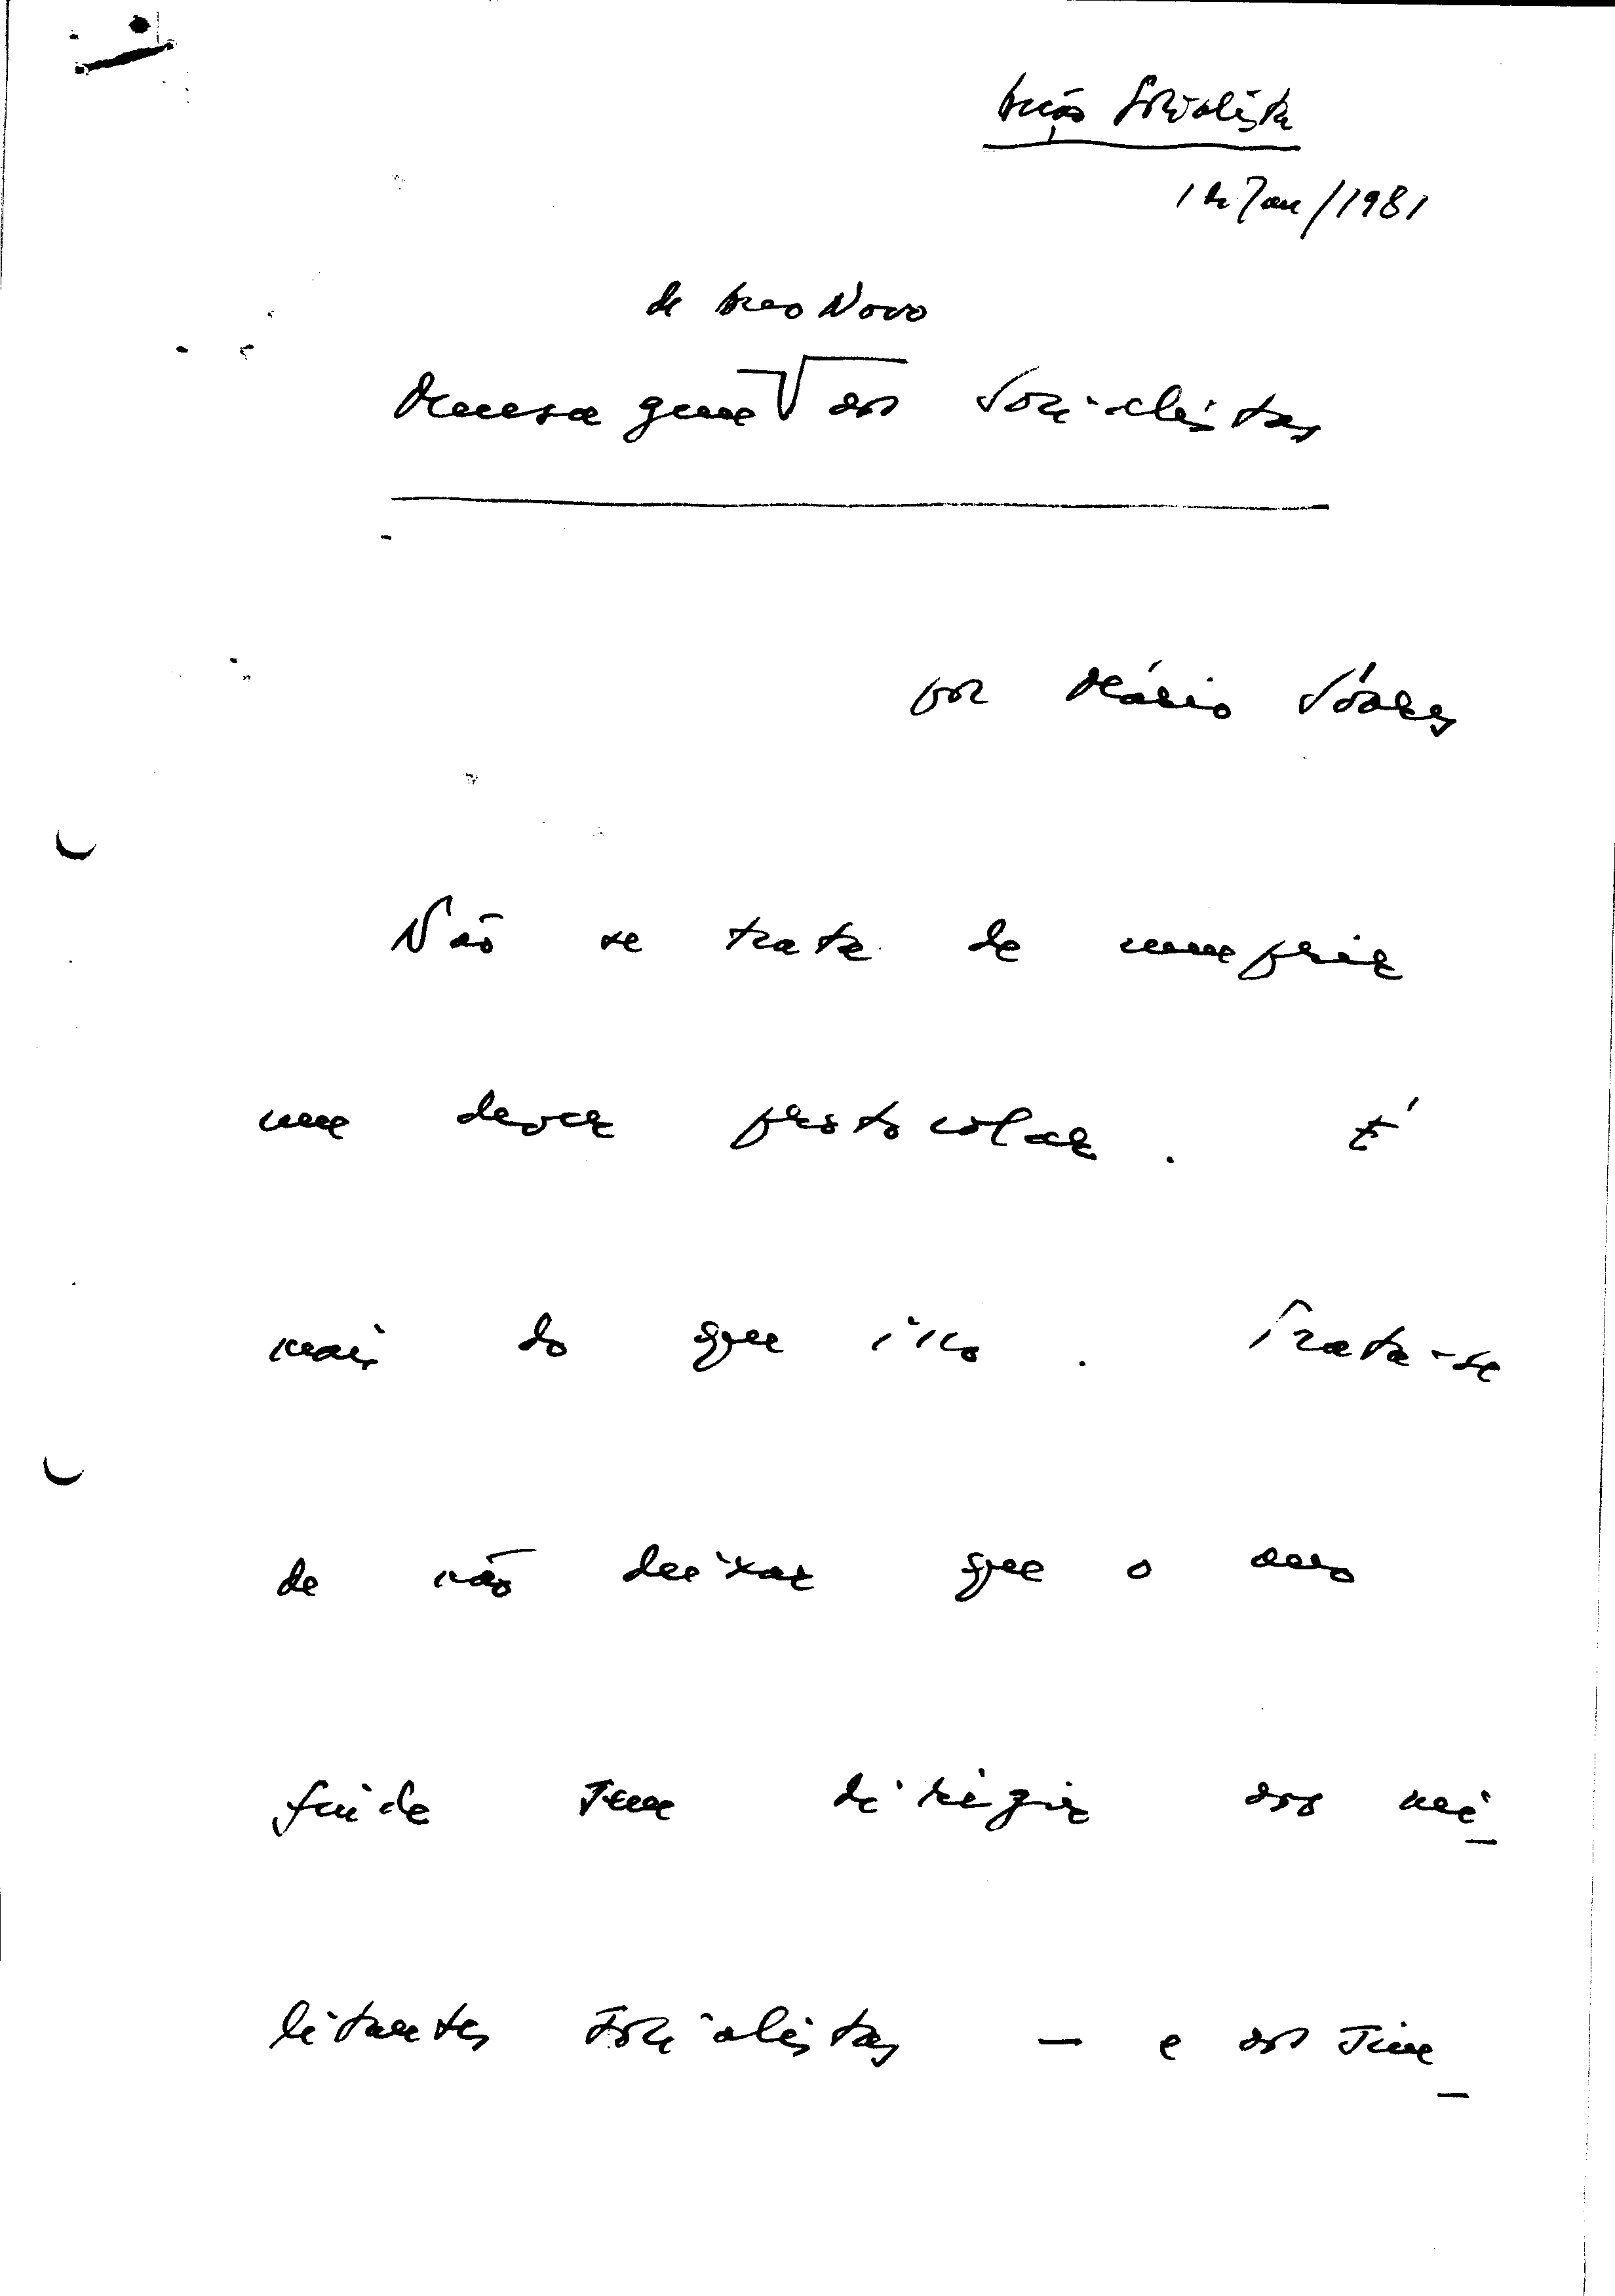 Acção Socialista
1 de Jan/1981
de Ano Novo
Mensagem aos Socialistas
por Mário Soares
Não se trata de cumprir
um dever protocolar. É
mais do que isso. Trata-se
de não deixar que o ano
finde sem dirigir aos mi-
litantes socialistas - e aos sim-